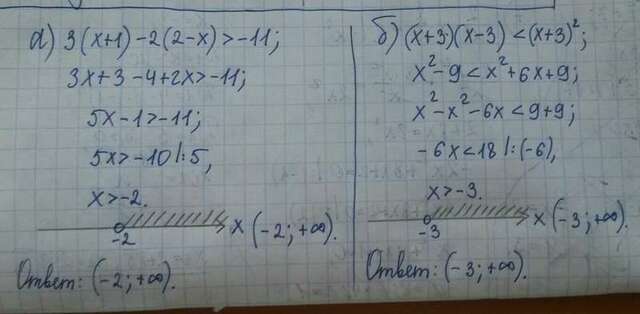 а) 3(x+1)-2(2-x)>-11;
3x+3-4+2x>-11;
5x-1>-11;
5x>-10 |:5,
x>-2.
-2 x (-2; +∞).
Ответ: (-2; +∞).
б) (x+3)(x-3)<(x+3)²;
x²-9<x²+6x+9;
x²-x²-6x<9+9;
-6x<18 |:(-6),
x>-3.
-3 x (-3; +∞).
Ответ: (-3; +∞).